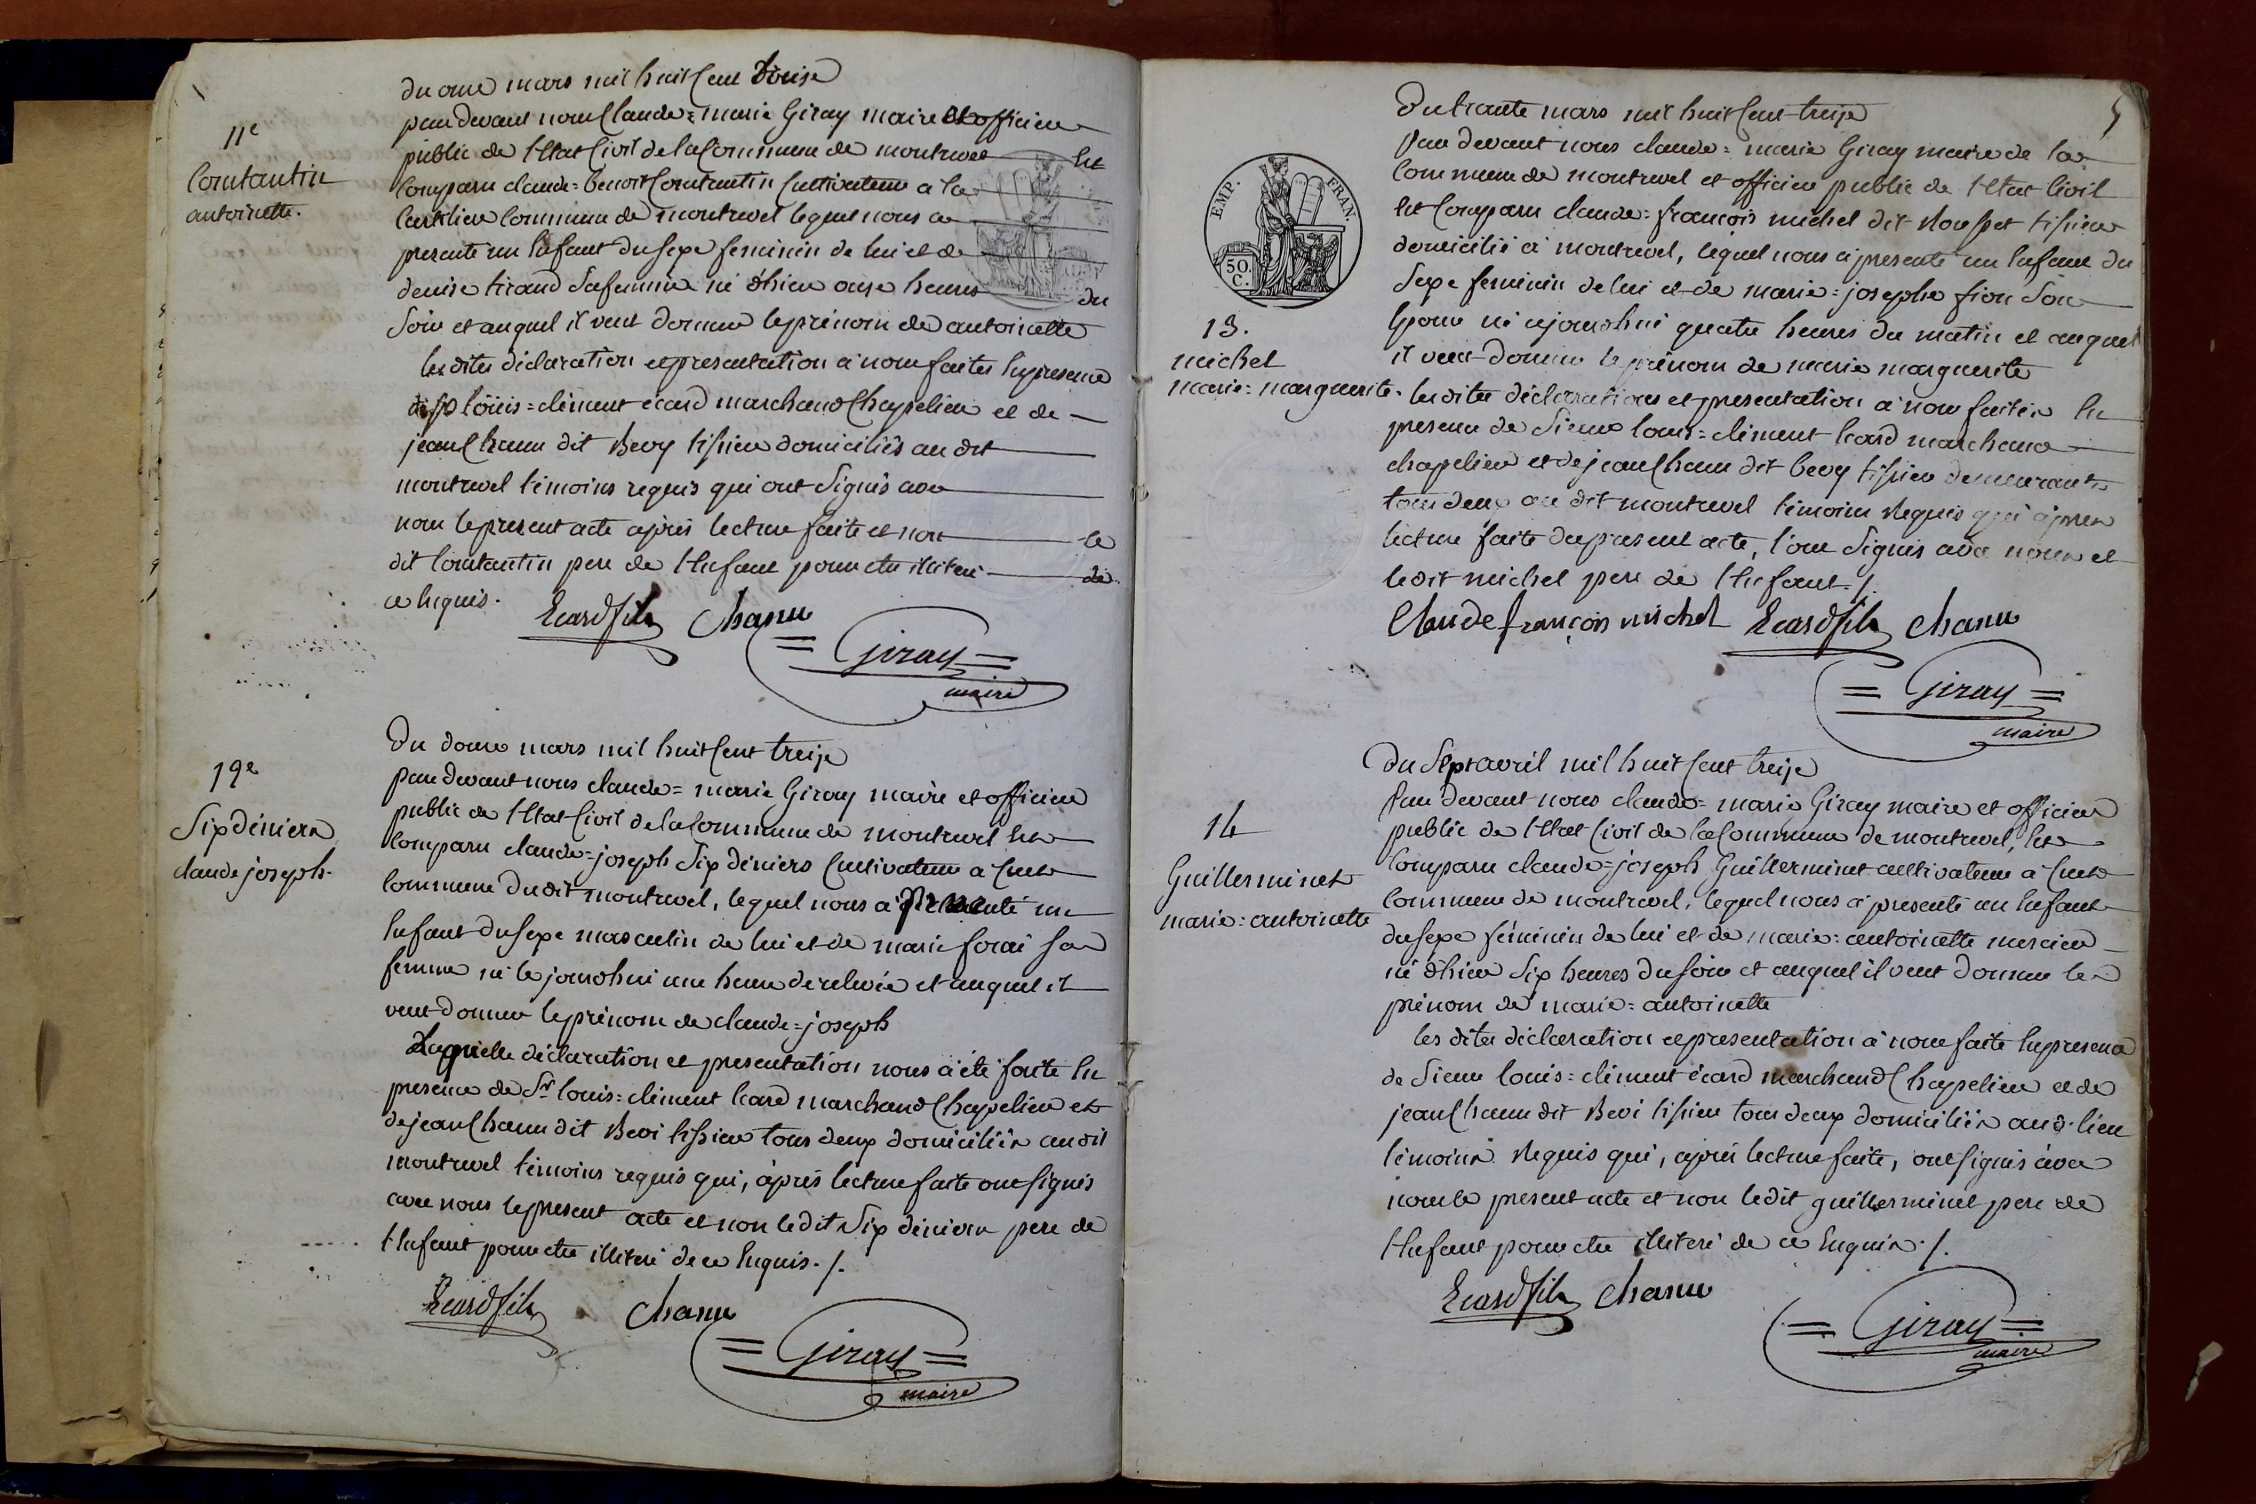 11e
Constantin
antoinette.
du onze mars mil huit Cent treise
par devant nous Claude=marie Giray maire et officier
public de l'Etat Civil de la Commune de montrevel Est
Comparu claude=benoit Constantin Cultivateur a la
Curtilien Commune de montrevel lequel nous a
presenté un Enfant du sexe feminin de lui et de
denise tirand sa femme né d'hier onze heures du
Soir et auquel il veut donner le prénom de antoinette
lesdites déclaration et presentation à nous faites En presence
de Sr loüis=clément écard marchand Chapelier et de
jean Chanu dit Bevy tissier domiciliés au dit
montrevel témoins requis qui ont signés avec
nous le present acte après lecture faite et non le
dit Constantin pere de l'Enfant pour etre illiteré de
ce Enquis.
Ecard fils Chanu
Giray
maire
12e
Six déniers
claude joseph.
Du douze mars mil huit Cent treize
par devant nous claude=marie Giray maire et officier
public de l'Etat Civil de la Commune de montrevel Est
Comparu claude=joseph Six déniers Cultivateur a Cuet
Commune dudit montrevel, lequel nous a presenté un
Enfant du sexe masculin de lui et de marie forai sa
femme né le jourdhui une heure de relevée et auquel il
veut donner le prénom de claude=joseph
Laquelle déclaration et presentation nous à été faite En
presence de Sr louis=clément Ecard marchand Chapelier et
de jean Chanu dit Bevi tissier tous deux domiciliés audit
montrevel témoins requis qui, après lecture faite ont signés
avec nous le present acte et non ledit Six déniers pere de
l'Enfant pour etre illiteré de ce Enquis. /.
Ecard fils Chanu
Giray
maire
5
EMP. FRAN.
50.
C.
13.
michel
marie=marguerite.
Du trante mars mil huit Cent treize
Par devant nous claude=marie Giray maire de la
Commune de montrevel et officier public de l'Etat Civil
Est Comparu claude=françois michel dit tissier
domicilié à montrevel, lequel nous à presenté un Enfant du
Sexe feminin de lui et de marie=josephe fion Son
Epouse né ajourdhui quatre heures du matin et auquel
il veut donner le prénom de marie marguerite
lesdites déclaration et presentation à nous faites En
presence de Sieur louis=clément Ecard marchand
chapelier et de jean Chanu dit bevy tissier demeurants
tous deux au dit montrevel témoins Requis qui après
lecture faite du present acte, l'ont signés avec nous et
ledit michel pere de l'Enfant. /.
Claude françois michel Ecard fils Chanu
Giray
maire
14
Guillerminet
marie=antoinette
Du Sept avril mil huit Cent treize
Par devant nous claude=marie Giray maire et officier
public de l'Etat Civil de la Commune de montrevel, Est
Comparu claude=joseph Guillerminet cultivateur à Cuet
Commune de montrevel, lequel nous à presenté un Enfant
du sexe féminin de lui et de marie=antoinette mercier
né d'hier Six heures du soir et auquel il veut donner le
prénom de marie=antoinette
les dites déclaration et presentation à nous faite En presence
de Sieur louis=clément écard marchand Chapelier et de
jean Chanu dit Bevi tissier tous deux domiciliés aud. lieu
témoins Requis qui, après lecture faite, ont signés avec
nous le present acte et non ledit guillerminet pere de
l'Enfant pour etre illiteré de ce Enquis. /.
Ecard fils Chanu
Giray
maire